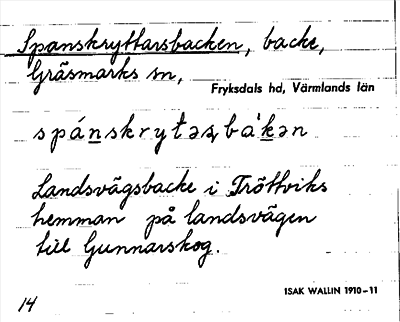 Spanskryttarsbacken, backe,
Gräsmarks sn,
Fryksdals hd, Värmlands län
spánskrytəʂbàkən
Landsvägsbacke i Tröttviks
hemman på landsvägen
till Gunnarskog.
ISAK WALLIN 1910-11
14